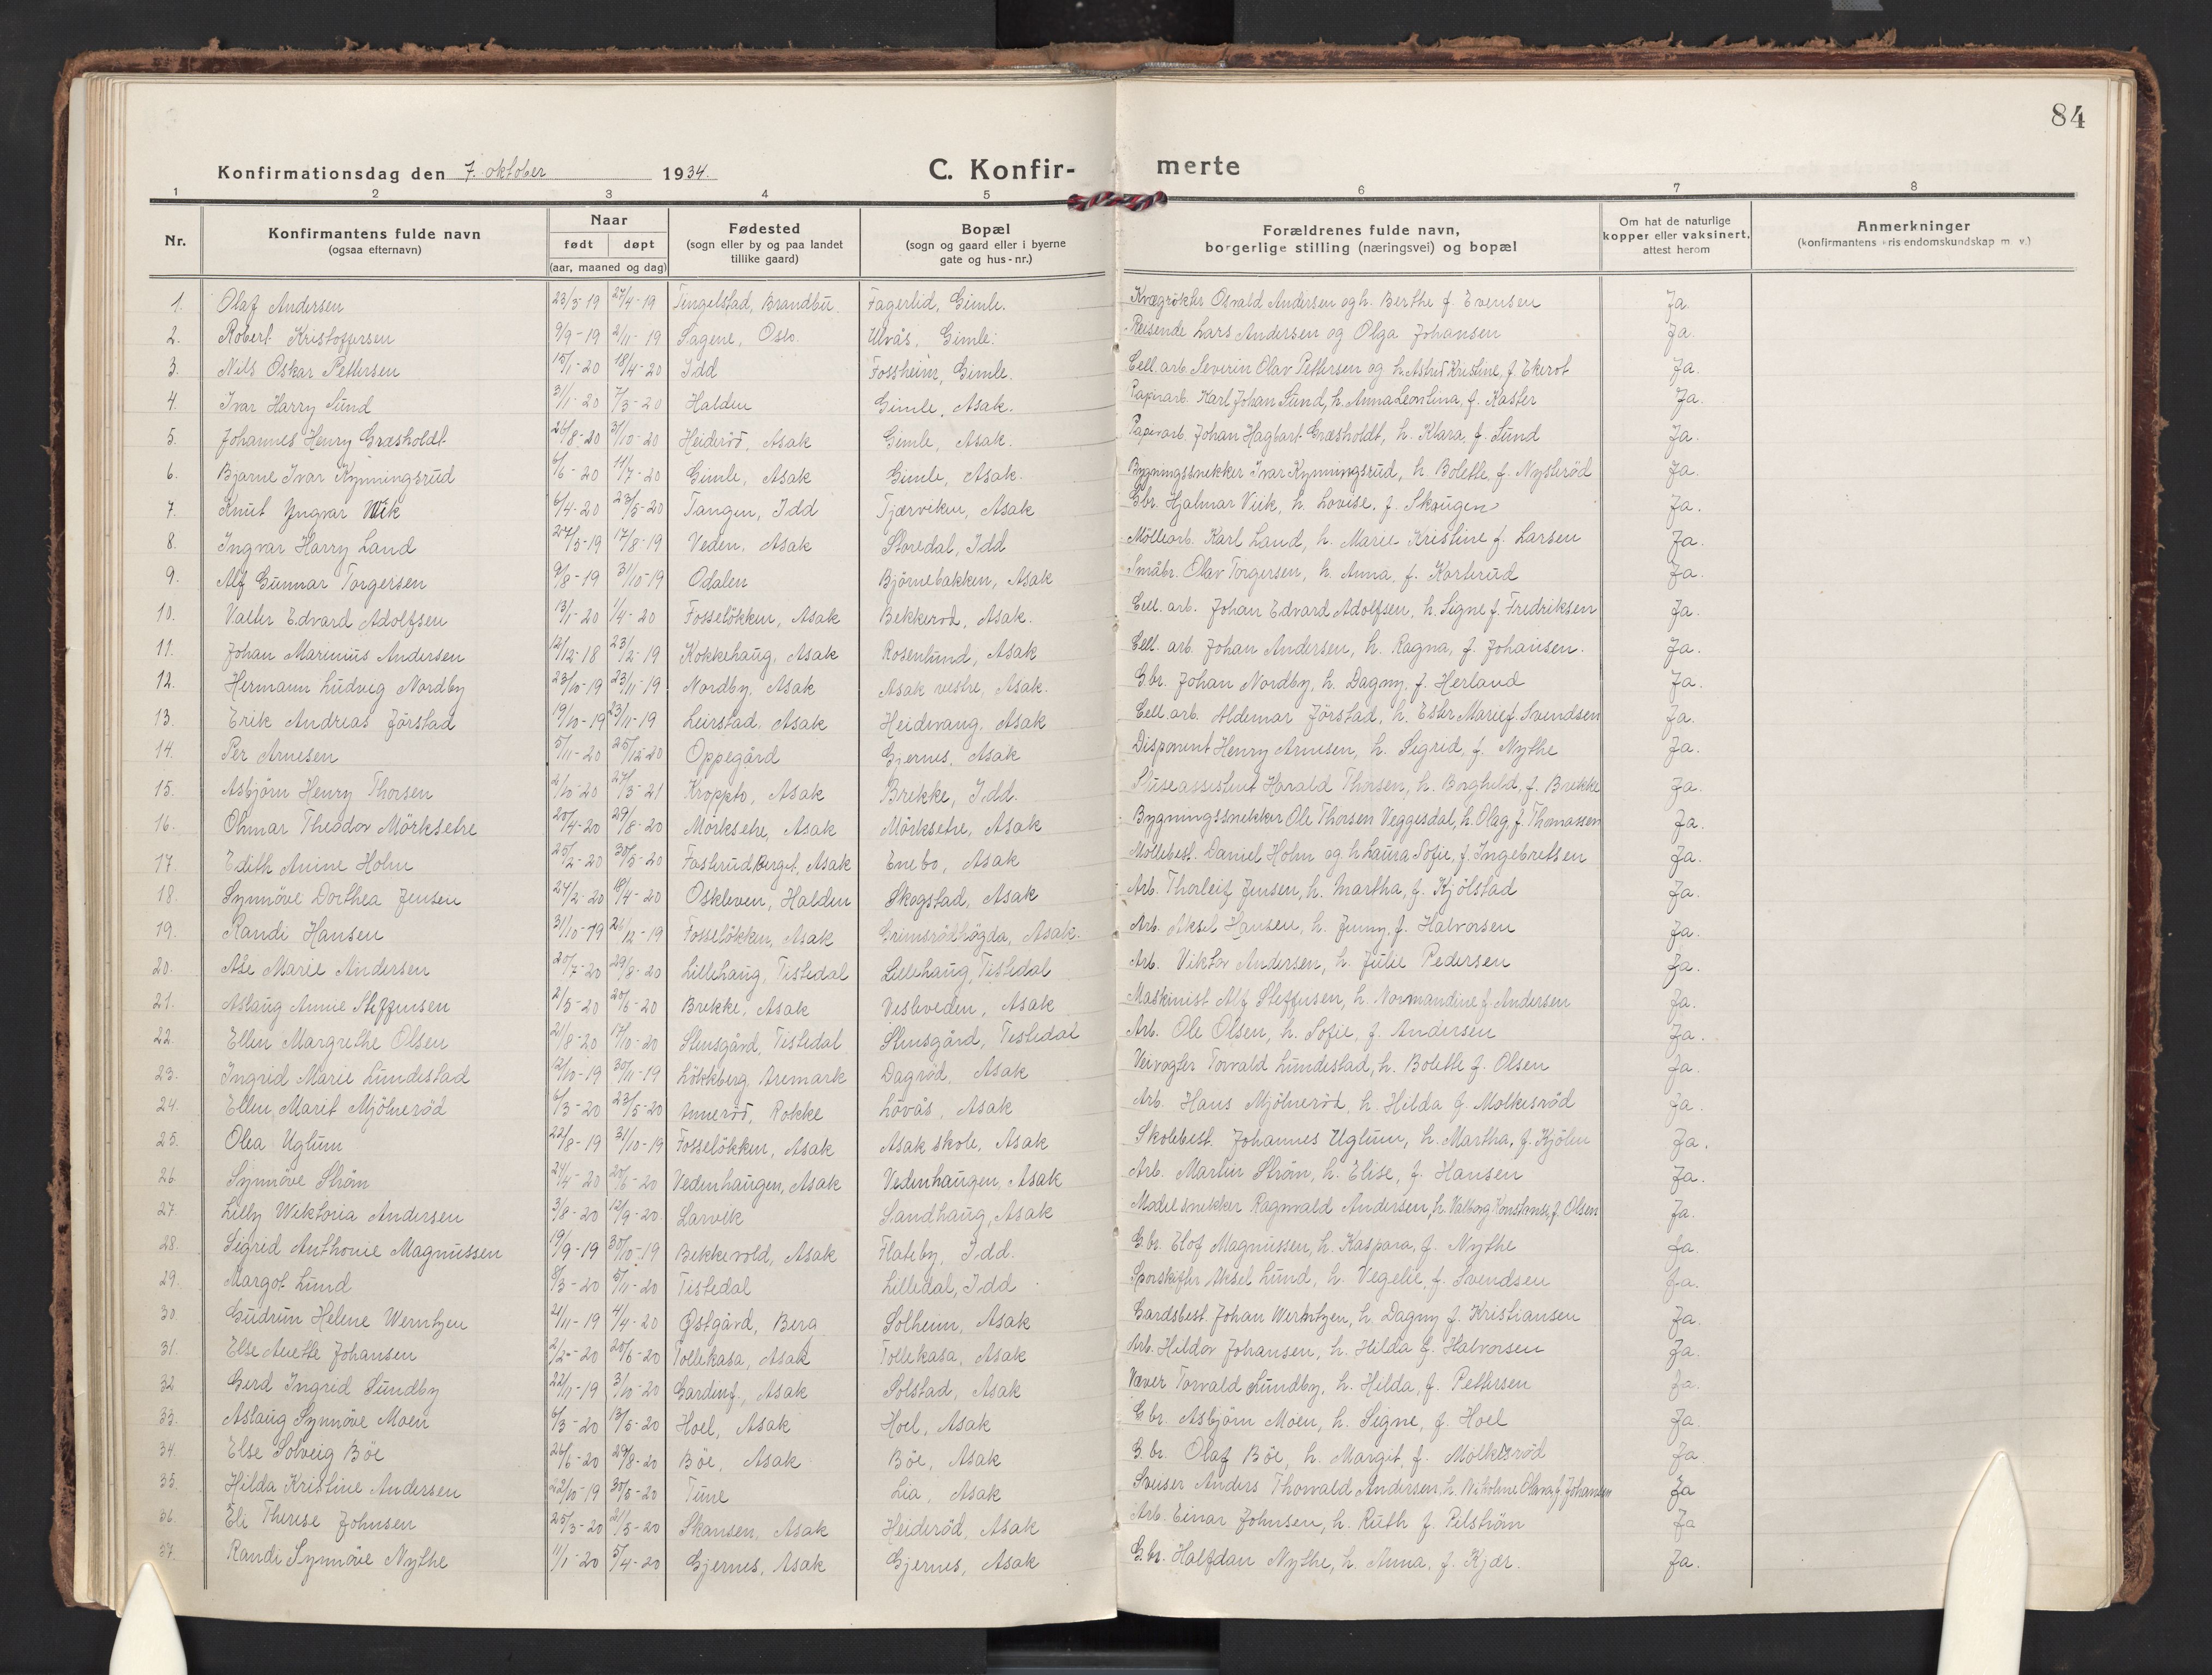 84
Konfirmationsdag den 7. oktober 1934. C. Konfir- merte
1 2 3 4 5 6 7 8
Nr. Konfirmantens fulde navn (ogsaa efternavn) Naar født døpt (aar, maaned og dag) Fødested (sogn eller by og paa landet tillike gaard) Bopæl (sogn og gaard eller i byerne gate og hus-nr.) Forældrenes fulde navn, borgerlige stilling (næringsvei) og bopæl Om hat de naturlige kopper eller vaksinert, attest herom Anmerkninger (konfirmantens kristendomskundskap m. v.)
1. Olaf Andersen 23/3-19 27/4-19 Tingelstad, Brandbu Fagerlid, Gimle. Kvægrøkter Osvald Andersen og h. Berthe f. Evensen Ja.
2. Robert Kristoffersen 9/9-19 2/11-19 Sagene, Oslo. Ulvås, Gimle. Reisende Lars Andersen og Olga Johansen Ja.
3. Nils Oskar Pettersen 15/1-20 18/4-20 Idd Fossheim, Gimle. Cell. arb. Severin Olav Pettersen og h. Astrid Kristine, f. Ekerot Ja.
4. Ivar Harry Sund 3/1-20 7/3-20 Halden Gimle, Asak. Papirarb. Karl Johan Sund, h. Anna Leontina, f. Kaster Ja.
5. Johannes Henry Græsholdt 26/8-20 31/10-20 Heideröd, Asak Gimle, Asak. Papirarb. Johan Hagbart Græsholdt, h. Klara, f. Sund Ja.
6. Bjarne Ivar Kynningsrud 6/6-20 11/7-20 Gimle, Asak Gimle, Asak. Bygningssnekker Ivar Kynningsrud, h. Bolette, f. Nysteröd Ja.
7. Knut Yngvar Wiik 6/4-20 23/5-20 Tangen, Idd Tjærviken, Asak Gbr. Hjalmar Viik, h. Lovise, f. Skaugen Ja.
8. Ingvar Harry Land 27/5-19 17/8-19 Veden, Asak Storedal, Idd Möllearb. Karl Land, h. Marie Kristine f. Larsen Ja.
9. Alf Gunnar Torgersen 9/8-19 31/10-19 Odalen Björnebakken, Asak Småbr. Olav Torgersen, h. Anna, f. Karterud Ja.
10. Valter Edvard Adolfsen 13/1-20 1/4-20 Fosselökken, Asak Bekkeröd, Asak. Cell. arb. Johan Edvard Adolfsen, h. Signe f. Fredriksen Ja
11. Johan Marinius Andersen 12/12-18 23/2-19 Kokkehaug, Asak Rosenlund, Asak Cell. arb. Johan Andersen, h. Ragna, f. Johansen. Ja.
12. Hermann Ludvig Nordby 23/10-19 23/11-19 Nordby, Asak Asak vestre, Asak. G.br. Johan Nordby, h. Dagny, f. Herland Ja.
13. Erik Andreas Jörstad 19/10-19 23/11-19 Leirstad, Asak Heidevang, Asak Cell. arb. Aldemar Jörstad, h. Ester Marie f. Svendsen Ja.
14. Per Arnesen 5/11-20 25/12-20 Oppegård Gjernes, Asak Disponent Henry Arnesen, h. Sigrid, f. Nythe Ja.
15. Asbjörn Henry Thorsen 2/10-20 27/3-21 Kroppto, Asak Brekke, Idd. Sluseassistent Harald Thorsen, h. Borghild, f. Brekke Ja.
16. Othmar Theodor Mörksetre 20/4-20 29/8-20 Mörksetre, Asak Mörksetre, Asak Bygningssnekker Ole Thorsen Veggesdal, h. Olag, f. Thomassen Ja.
17. Edith Anine Holm 25/2-20 30/5-20 Fosterudberget, Asak Enebo, Asak Möllebest. Daniel Holm og h. Laura Sofie, f. Ingebretsen Ja.
18. Synnöve Dorthea Jensen 27/2-20 18/4-20 Oskleven, Halden Skogstad, Asak Arb. Thorleif Jensen, h. Martha, f. Kjölstad Ja.
19. Randi Hansen 31/10-19 26/12-19 Fosselökken, Asak Grimsrödhögda, Asak. Arb. Aksel Hansen, h. Jenny, f. Halvorsen Ja.
20. Åse Marie Andersen 20/7-20 29/8-20 Lillehaug, Tistedal Lillehaug, Tistedal Arb. Viktor Andersen, h. Julie Pedersen Ja.
21. Aslaug Annie Steffensen 2/5-20 20/6-20 Brekke, Asak Vesleveden, Asak Maskinist Alf Steffensen, h. Normandine f. Andersen Ja.
22. Ellen Margrethe Olsen 21/8-20 17/10-20 Stensgård, Tistedal Stensgård, Tistedal Arb. Ole Olsen, h. Sofie, f. Andersen Ja.
23. Ingrid Marie Lundestad 12/10-19 30/11-19 Lökkberg, Aremark Dagröd, Asak Veivogter Torvald Lundestad, h. Bolette f. Olsen Ja.
24. Ellen Marit Mjölneröd 6/3-20 23/5-20 Anneröd, Rokke Lövås, Asak Arb. Hans Mjölneröd, h. Hilda f. Molkesröd Ja.
25. Olea Uglum 22/8-19 31/10-19 Fosselökken, Asak Asak skole, Asak Skolebest. Johannes Uglum, h. Martha, f. Kjölen Ja.
26. Synnöve Ström 24/4-20 20/6-20 Vedenhaugen, Asak Vedenhaugen, Asak Arb. Martin Ström, h. Elise, f. Hansen Ja.
27. Lilly Wiktoria Andersen 3/8-20 12/9-20 Larvik Sandhaug, Asak Modelsnekker Ragnvald Andersen, h. Valborg Konstanse, f. Olsen Ja.
28. Sigrid Anthonie Magnussen 19/9-19 30/10-19 Bekkevold, Asak Flateby, Idd. G.br. Elof Magnussen, h. Kaspara, f. Nythe Ja.
29. Margot Lund 8/3-20 5/11-20 Tistedal Lilledal, Idd Sporskifter Aksel Lund, h. Vegelie, f. Svendsen Ja.
30. Gudrun Helene Werntzen 2/11-19 4/4-20 Östgård, Berg Solheim, Asak Gardsbest. Johan Werntzen, h. Dagny f. Kristiansen Ja.
31. Else Anette Johansen 2/2-20 20/6-20 Tollekasa, Asak Tollekasa, Asak Arb. Hildor Johansen, h. Hilda f. Halvorsen Ja.
32 Gerd Ingrid Sundby 22/11-19 3/10-20 Garding, Asak Solstad, Asak Væver Torvald Sundby, h. Hilda, f. Pettersen Ja.
33. Aslaug Synnöve Moen 6/3-20 13/5-20 Hoel, Asak Hoel, Asak G.br. Asbjörn Moen, h. Signe, f. Hoel Ja.
34. Else Solveig Böe 26/6-20 29/8-20 Böe, Asak Böe, Asak G.br. Olaf Böe, h. Margit, f. Molkesröd Ja
35. Hilda Kristine Andersen 22/10-19 30/5-20 Tune Lia, Asak Sveiser Anders Thorvald Andersen, h. Nikoline Olava, f. Johansen Ja
36. Eli Therese Johnsen 25/3-20 21/5-20 Skansen, Asak Heideröd, Asak Arb. Einar Johnsen, h. Ruth f. Pelström Ja
37. Randi Synnöve Nythe 11/1-20 5/4-20 Gjernes, Asak Gjernes, Asak G.br. Halfdan Nythe, h. Anna, f. Kjær. Ja.